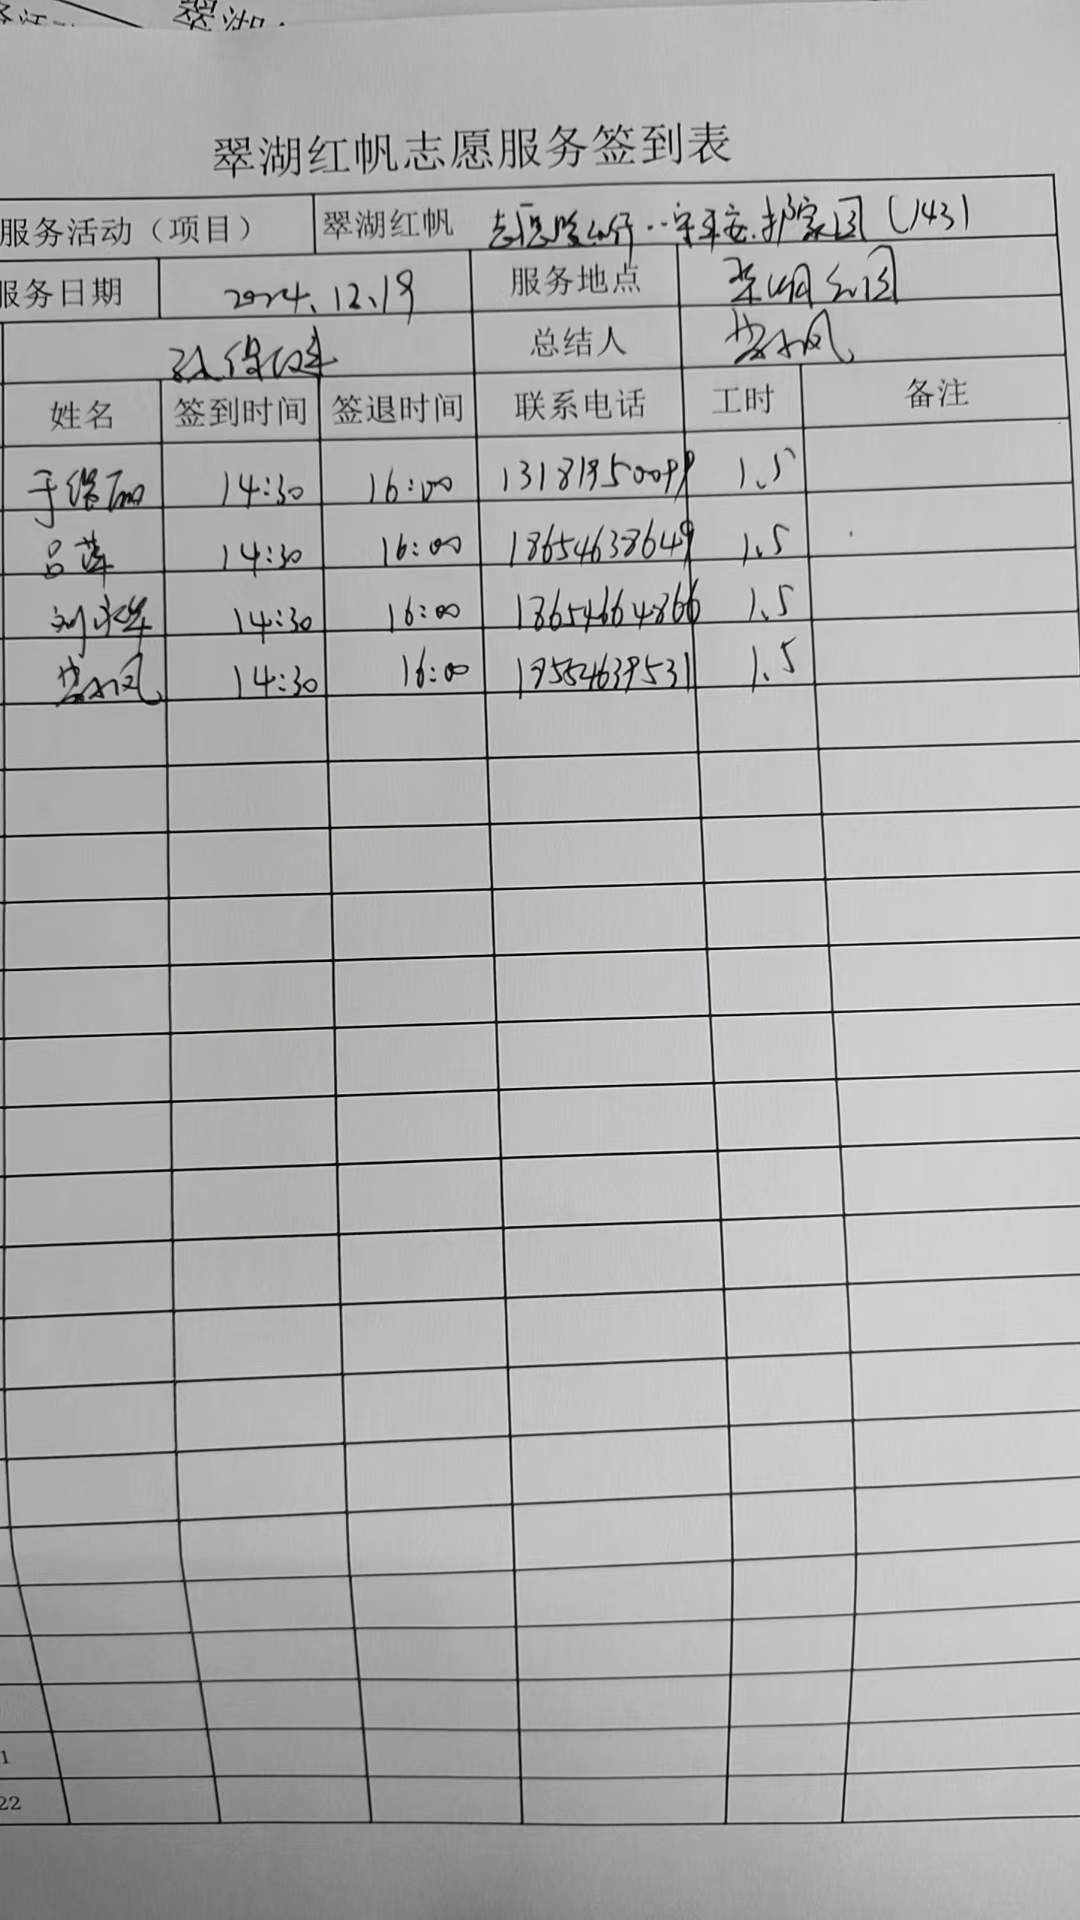 翠湖
翠湖红帆志愿服务签到表
服务活动（项目） 翠湖红帆 志愿 守平安.护家园（143）
服务日期 2024.12.19 服务地点
总结人
姓名 签到时间 签退时间 联系电话 工时 备注
14:30 16:00 13181950099 1.5
吕萍 14:30 16:00 18654638649 1.5
刘 14:30 16:00 18654664866 1.5
14:30 16:00 19552639531 1.5
1
22